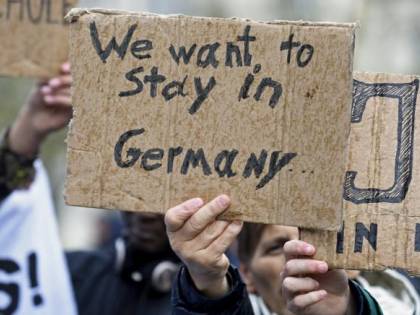 CHOLE
We want to
stay in
Germany...
IN
!